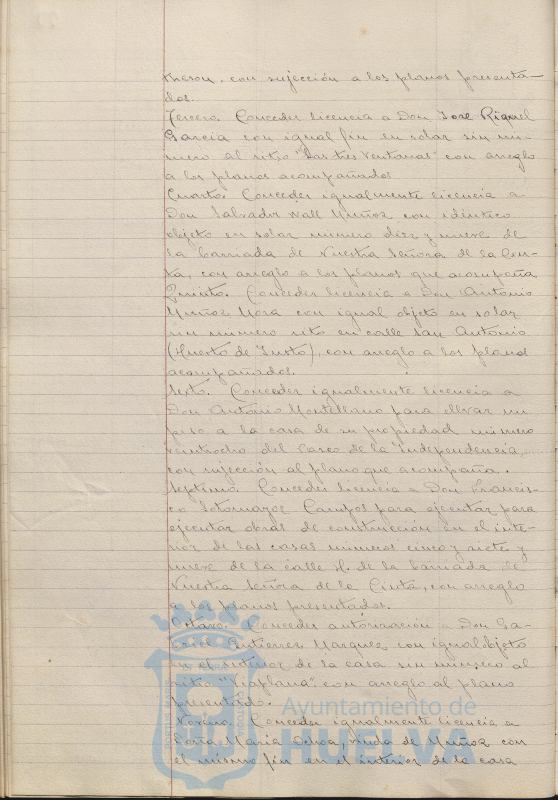 Meson, con sujección a los planos presenta-
dos.
Tercero. Conceder licencia a Don Jose Riquel
Garcia con igual fin en solar sin nu-
mero al sitio "Las tres Ventanas" con arreglo
a los planos acompañados
Cuarto. Conceder igualmente licencia a
Don Salvador Wall Muñoz con identico
objeto en solar numero diez y nueve de
la barriada de Nuestra Señora de la Cin-
ta, con arreglo a los planos que acompaña
Quinto. Conceder licencia a Don Antonio
Muñoz Mora con igual objeto en solar
sin numero sito en calle San Antonio
(Huerto de Justo), con arreglo a los planos
acompañados.
Sexto. Conceder igualmente licencia a
Don Antonio Montellano para elevar un
piso a la casa de su propiedad número
veintiocho del Paseo de la Independencia,
con sujección al plano que acompaña.
Septimo. Conceder licencia a Don Francis-
co Sotomayor Campos para ejecutar para
ejecutar obras de construcción en el inte-
rior de las casas numeros cinco y siete y
nueve de la calle H. de la barriada de
Nuestra Señora de la Cinta, con arreglo
a los planos presentados.
Octavo. Conceder autorización a Don Ga-
briel Gutierrez Marquez con igual objeto
en el interior de la casa sin numero al
sitio "Viaplana" con arreglo al plano
presentado.
Noveno. Conceder igualmente licencia a
Doña Maria Ochoa, viuda de Muñoz con
el mismo fin en el interior de la casa
Ayuntamiento de
HUELVA